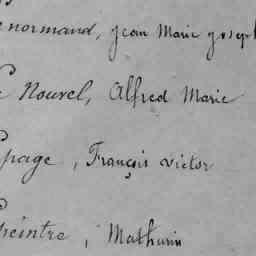 enormand, Jean Marie Joseph
e Nouvel, Alfred Marie
page, François Victor
peintre, Mathurin